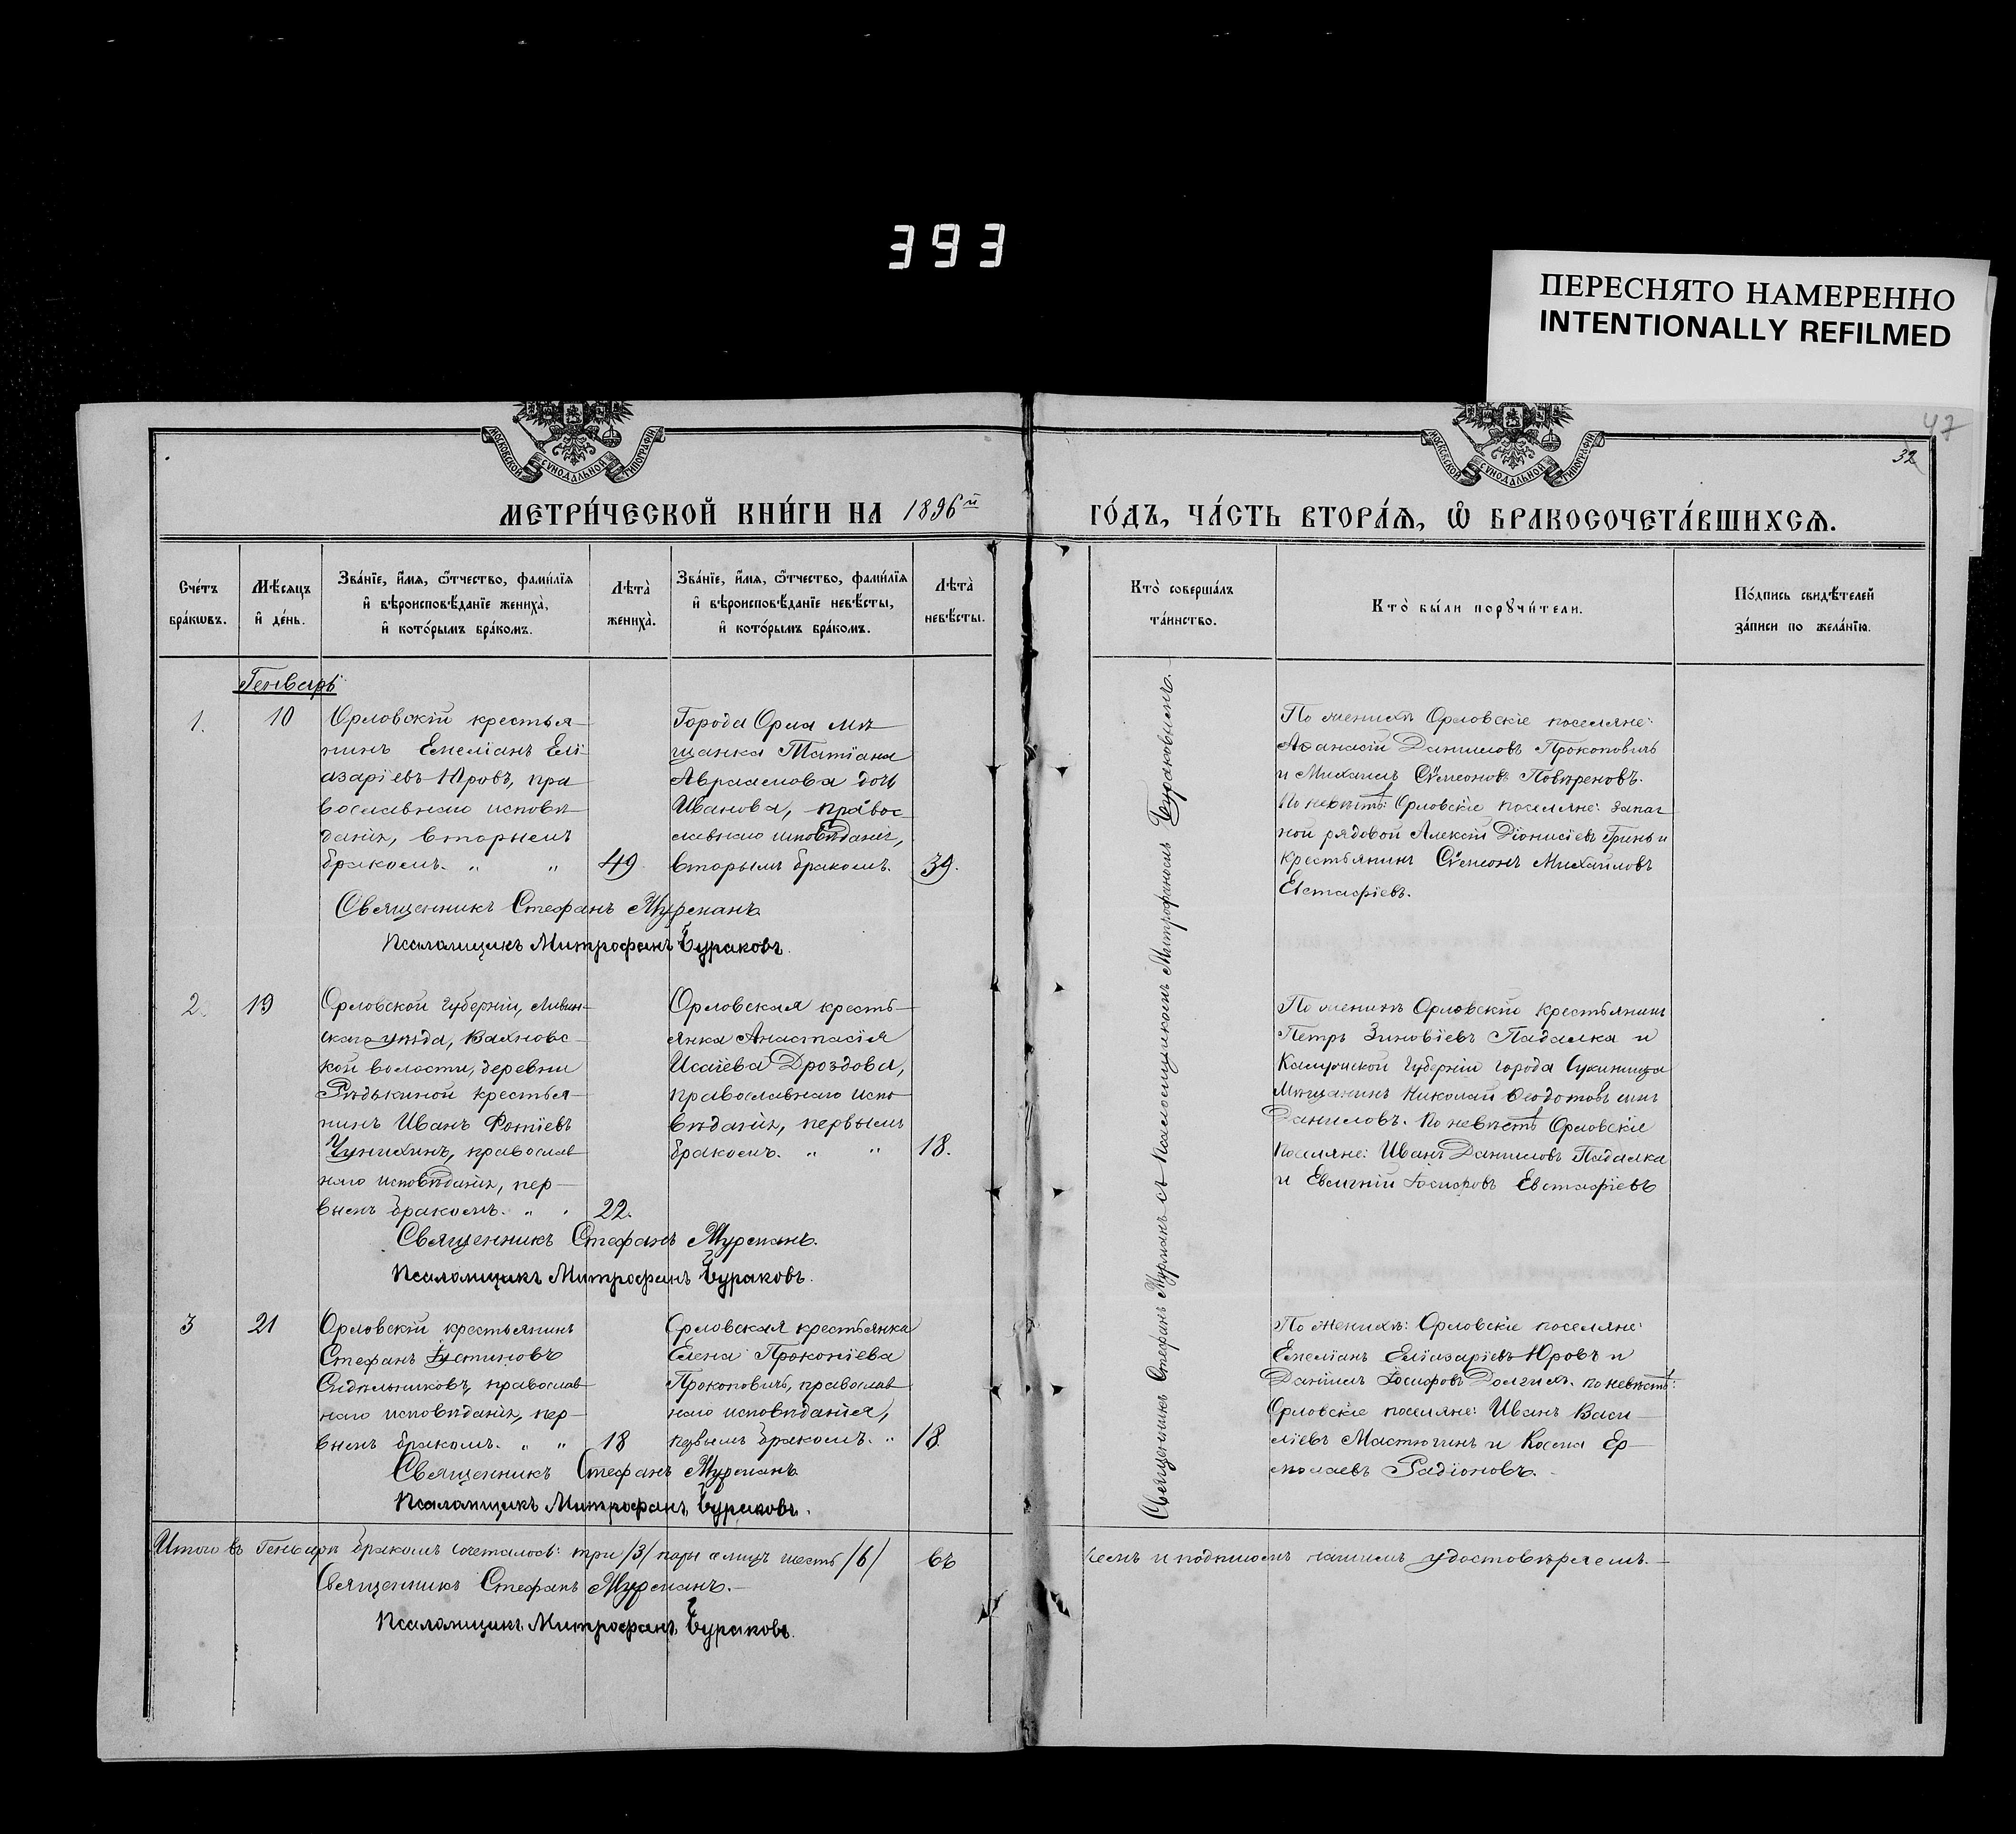 393
ПЕРЕСНЯТО НАМЕРЕННО
INTENTIONALLY REFILMED
47
32
МОСКОВСКОЙ СѴНОДАЛЬНОЙ ТИПОГРАФІИ
МОСКОВСКОЙ СѴНОДАЛЬНОЙ ТИПОГРАФІИ
МЕТРИ́ЧЕСКОЙ КНИ́ГИ НА 1896й ГО́ДЪ, ЧА́СТЬ ВТОРА́Ѧ, Ѽ БРАКОСОЧЕТА́ВШИХСѦ.
Сче́тъ
бра́кѡвъ.
Мѣ́сяцъ
и҆ де́нь.
Зва́нїе, и҆́мя, ѻ҆́тчество, фами́лїя
и҆ вѣроисповѣ́данїе жениха̀,
и҆ кото́рымъ бра́комъ.
Лѣта̀
жениха̀.
Зва́нїе, и҆́мя, ѻ҆́тчество, фами́лїя
и҆ вѣроисповѣ́данїе невѣ́сты,
и҆ кото́рымъ бра́комъ.
Лѣта̀
невѣ́сты.
Кто̀ соверша́лъ
та́инство.
Кто̀ бы́ли порꙋчи́тели.
По́дпись свидѣ́телей
за́писи по жела́нїю.
Генварь
1.
10
Орловскій крестья-
нинъ Емеліанъ Елі
азаріевъ Юровъ, пра
вославнаго исповѣ
данія, вторымъ
бракомъ. „ „
49.
Города Орла мѣ
щанка Татіана
Авраамова дочь
Иванова, правос
лавнаго исповѣданія,
вторымъ бракомъ.
39.
По женихѣ Орловскіе поселяне:
Аѳанасій Даниловъ Прокоповичъ
и Михаилъ Сѵмеоновъ Повѣреновъ.
По невѣстѣ: Орловскіе поселяне: запас
ной рядовой Алексій Діонисіевъ Гринь и
крестьянинъ Сѵмеонъ Михайловъ
Евстафіевъ.
Священникъ Стефанъ Мурманъ.
Псаломщикъ Митрофанъ Бураковъ.
2.
19
Орловской губерніи, Ливен-
скаго уѣзда, Вахновс-
кой волости, деревни
Рѣдькиной крестья-
нинъ Иванъ Фотіевъ
Чунихинъ, православ
наго исповѣданія, пер-
вымъ бракомъ. „ „
22.
Орловская кресть-
янка Анастасія
Исаіева Дроздова,
православнаго испо
вѣданія, первымъ
бракомъ. „ „
18.
По женихѣ Орловскій крестьянинъ
Петръ Зиновіевъ Падалка и
Калужской губерніи города Сухиничи
мѣщанинъ Николай Ѳеодотовъ сынъ
Даниловъ. По невѣстѣ Орловскіе
поселяне: Иванъ Даниловъ Падалка
и Евгеній Іосифовъ Евстафіевъ
Священникъ Стефанъ Мурманъ.
Псаломщикъ Митрофанъ Бураковъ.
3
21
Орловскій крестьянинъ
Стефанъ Іустиновъ
Сидѣльниковъ, православ
наго исповѣданія, пер-
вымъ бракомъ. „ „
18
Орловская крестьянка
Елена Прокопіева
Прокоповичъ, православ
наго исповѣданія,
первымъ бракомъ. „
18.
По женихѣ: Орловскіе поселяне:
Емеліанъ Еліазаріевъ Юровъ и
Даніилъ Іосифовъ Долгихъ. по невѣстѣ:
Орловскіе поселяне: Иванъ Васи-
ліевъ Мастюгинъ и Косма Ер-
молаевъ Радіоновъ.
Священникъ Стефанъ Мурманъ
Псаломщикъ Митрофанъ Бураковъ.
Священникъ Стефанъ Мурманъ съ Псаломщикомъ Митрофаномъ Бураковымъ.
Итого въ Генварѣ бракомъ сочеталось: три /3/ пары а лицъ шесть /6/ въ чемъ и подписомъ нашимъ удостовѣряемъ.
Священникъ Стефанъ Мурманъ.
Псаломщикъ Митрофанъ Бураковъ.